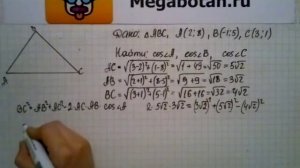 Megabotan.ru
Дано: △ABC, A(2;8), B(-1;5), C(3;1)
Найти: cos∠A, cos∠B, cos∠C
AC = √(3-2)²+(1-8)² = √1+49 = √50 = 5√2
AB = √(2+1)²+(8-5)² = √9+9 = √18 = 3√2
BC = √(3+1)²+(5-1)² = √16+16 = √32 = 4√2
BC² = AB²+AC²-2·AC·AB·cos∠A
2·5√2·3√2 = (3√2)²+(5√2)²-(4√2)²
A
C